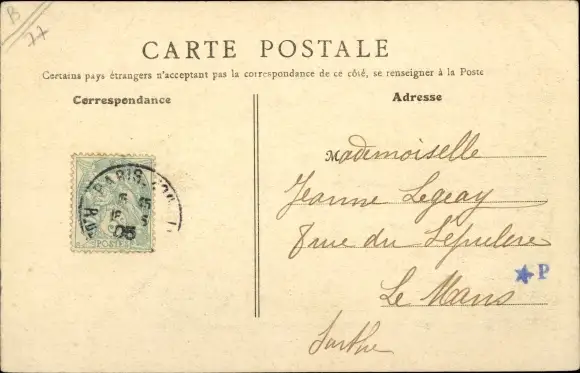 B
77
CARTE POSTALE
Certains pays étrangers n'acceptant pas la correspondance de ce côté, se renseigner à la Poste
Correspondance
Adresse
Mademoiselle
Jeanne Legeay
8 rue du Sépulcre
Le Mans
Sarthe
PARIS
05
POSTES
P